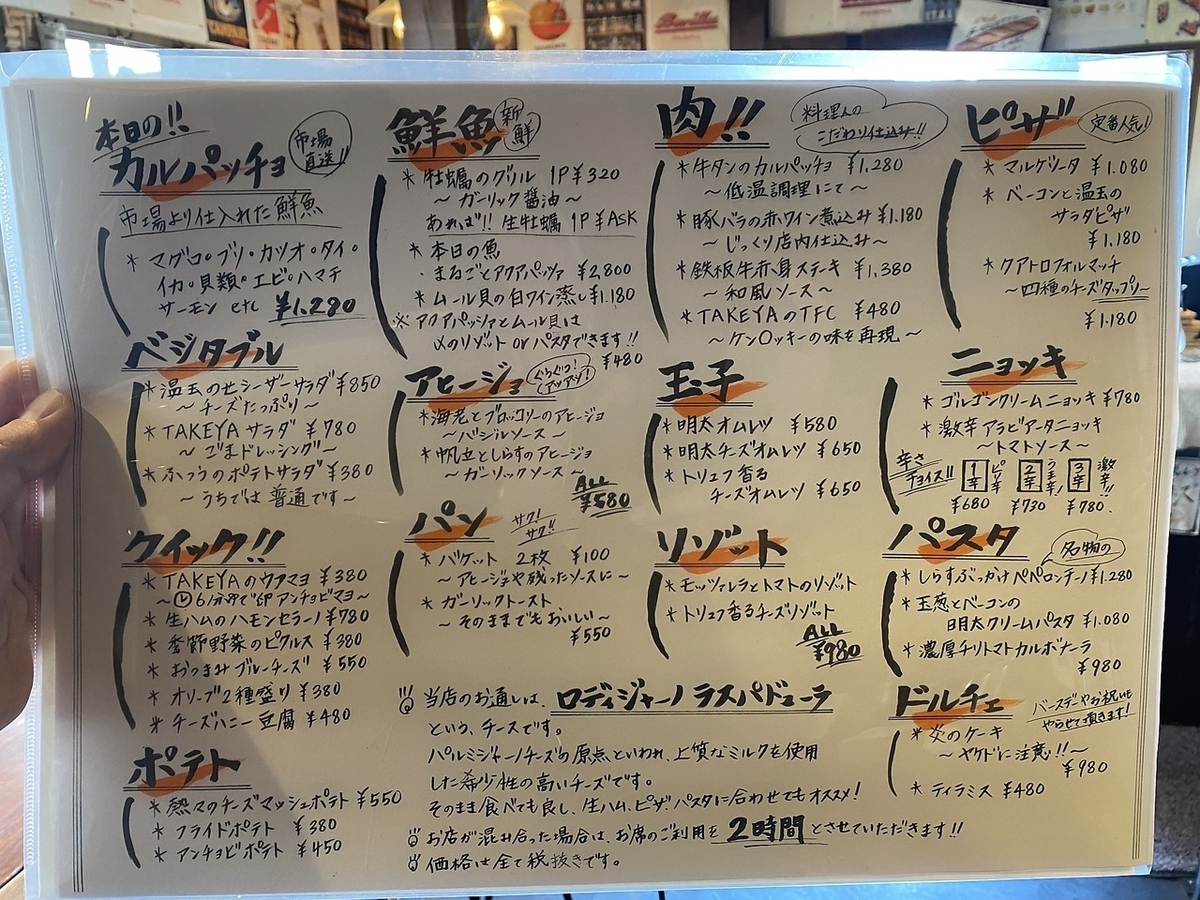 本日の!!
カルパッチョ
市場直送!!
市場より仕入れた鮮魚
* マグロ・ブリ・カツオ・タイ・
イカ・貝類・エビ・ハマチ
サーモン etc ¥1.280
ベジタブル
* 温玉のせシーザーサラダ ¥850
～チーズたっぷり～
* TAKEYAサラダ ¥780
～ごまドレッシング～
* ふつうのポテトサラダ ¥380
～うちでは普通です～
クイック!!
* TAKEYAのウフマヨ ¥380
～6分30秒で アンチョビマヨ～
* 生ハムのハモンセラーノ ¥780
* 季節野菜のピクルス ¥380
* おつまみブルーチーズ ¥550
* オリーブ2種盛り ¥380
* チーズハニー豆腐 ¥480
ポテト
* 熱々のチーズマッシュポテト ¥550
* フライドポテト ¥380
* アンチョビポテト ¥450
鮮魚
新鮮
* 牡蠣のグリル 1P ¥320
～ガーリック醤油～
あれば!! 生牡蠣 1P ¥ASK
* 本日の魚
・まるごとアクアパッツァ ¥2,800
* ムール貝の白ワイン蒸し ¥1.180
※ アクアパッツァとムール貝は
〆のリゾット or パスタできます!!
¥480
アヒージョ
ぐらぐつ!アツアツ!
* 海老とブロッコリーのアヒージョ
～バジルソース～
* 帆立としらすのアヒージョ
～ガーリックソース～
ALL
¥580
パン
サク!サク!!
* バケット 2枚 ¥100
～アヒージョや残ったソースに～
* ガーリックトースト
～そのままでもおいしい～
¥550
肉!!
料理人の
こだわり仕込み!!
* 牛タンのカルパッチョ ¥1,280
～低温調理にて～
* 豚バラの赤ワイン煮込み ¥1.180
～じっくり店内仕込み～
* 鉄板牛赤身ステーキ ¥1,380
～和風ソース～
* TAKEYAのTFC ¥480
～ケン〇ッキーの味を再現～
玉子
* 明太オムレツ ¥580
* 明太チーズオムレツ ¥650
* トリュフ香る
チーズオムレツ ¥650
リゾット
* モッツァレラとトマトのリゾット
* トリュフ香るチーズリゾット
ALL
¥980
ピザ
定番人気!
* マルゲリータ ¥1.080
* ベーコンと温玉の
サラダピザ
¥1.180
* クアトロフォルマッチ
～四種のチーズタップリ～
¥1.180
ニョッキ
* ゴルゴンクリームニョッキ ¥780
* 激辛アラビアータニョッキ
～トマトソース～
辛さ
チョイス!!
1辛 ピリ辛 2辛 うま辛! 3辛 激辛!!
¥680 ¥730 ¥780.
パスタ
名物の
* しらすぶっかけペペロンチーノ ¥1.280
* 玉葱とベーコンの
明太クリームパスタ ¥1.080
* 濃厚チリトマトカルボナーラ
¥980
ドルチェ
バースデーやお祝いも
やらせて頂きます!
* 炎のケーキ
～ヤケドに注意!!～
¥980
* ティラミス ¥480
当店のお通しは、ロディジャーノ ラスパドゥーラ
という、チーズです。
パルミジャーノチーズの原点といわれ、上質なミルクを使用
した希少性の高いチーズです。
そのまま食べても良し、生ハム、ピザ、パスタに合わせてもオススメ!
お店が混み合った場合は、お席のご利用を 2時間 とさせていただきます!!
価格は全て税抜きです。